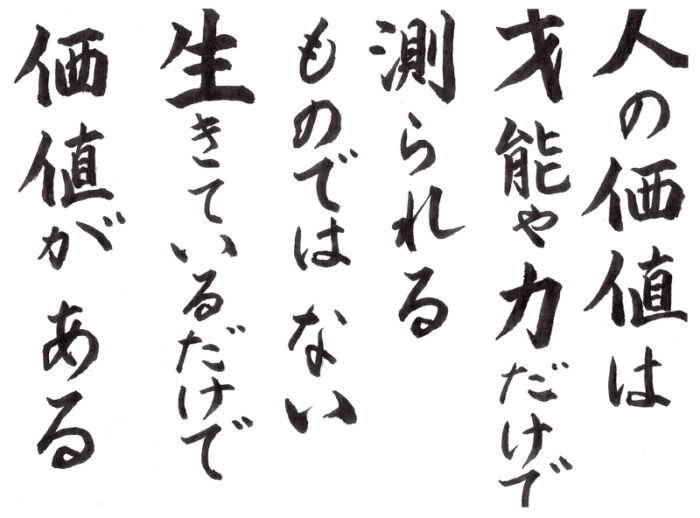 人の価値は
才能や力だけで
測られる
ものではない
生きているだけで
価値がある